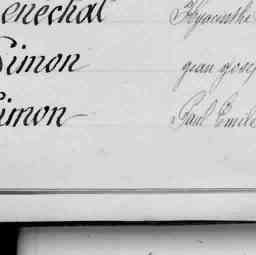 enechal Hyacinthe
Simon jean josep
Simon Paul Emile